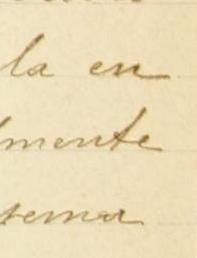 la en
lmente
tema